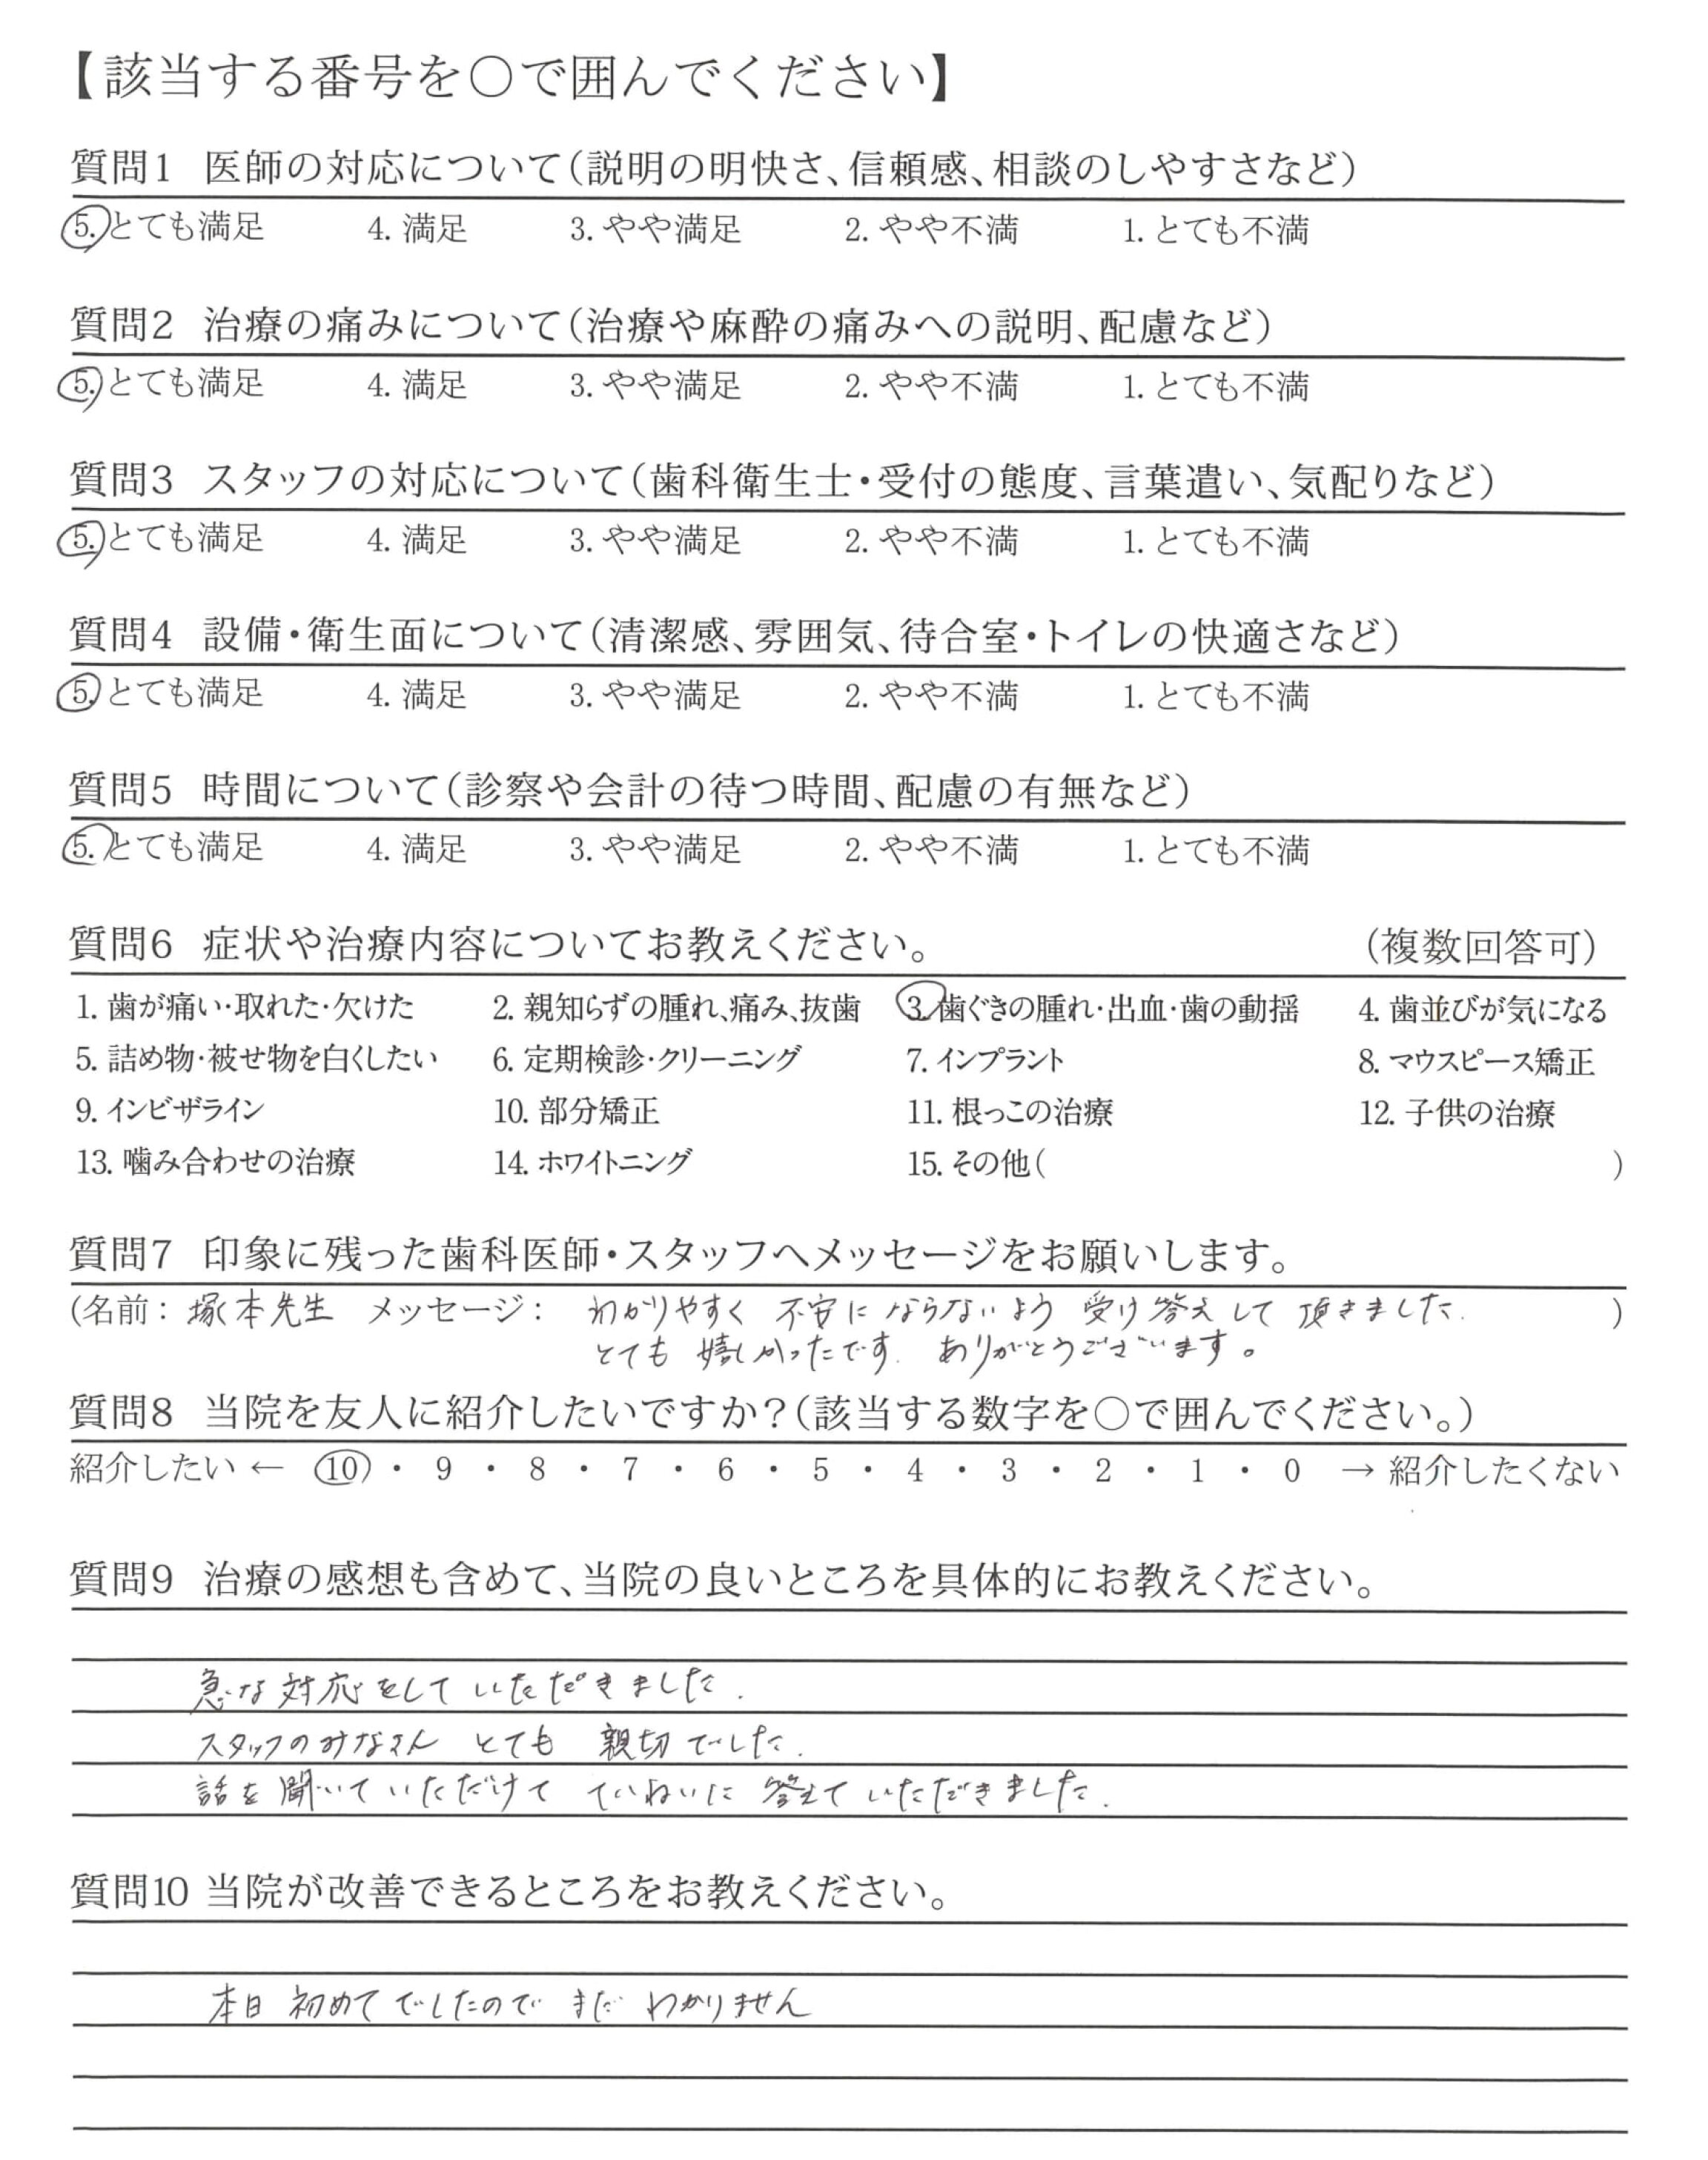 【該当する番号を○で囲んでください】
質問1 医師の対応について(説明の明快さ、信頼感、相談のしやすさなど)
5. とても満足 4. 満足 3. やや満足 2. やや不満 1. とても不満
質問2 治療の痛みについて(治療や麻酔の痛みへの説明、配慮など)
5. とても満足 4. 満足 3. やや満足 2. やや不満 1. とても不満
質問3 スタッフの対応について(歯科衛生士・受付の態度、言葉遣い、気配りなど)
5. とても満足 4. 満足 3. やや満足 2. やや不満 1. とても不満
質問4 設備・衛生面について(清潔感、雰囲気、待合室・トイレの快適さなど)
5. とても満足 4. 満足 3. やや満足 2. やや不満 1. とても不満
質問5 時間について(診察や会計の待つ時間、配慮の有無など)
5. とても満足 4. 満足 3. やや満足 2. やや不満 1. とても不満
質問6 症状や治療内容についてお教えください。 (複数回答可)
1. 歯が痛い・取れた・欠けた 2. 親知らずの腫れ、痛み、抜歯 3. 歯ぐきの腫れ・出血・歯の動揺 4. 歯並びが気になる
5. 詰め物・被せ物を白くしたい 6. 定期検診・クリーニング 7. インプラント 8. マウスピース矯正
9. インビザライン 10. 部分矯正 11. 根っこの治療 12. 子供の治療
13. 噛み合わせの治療 14. ホワイトニング 15. その他( )
質問7 印象に残った歯科医師・スタッフへメッセージをお願いします。
(名前: 塚本先生 メッセージ: わかりやすく 不安に ならないよう 受け答え して 頂きました. )
とても 嬉しかったです. ありがとうございます。
質問8 当院を友人に紹介したいですか?(該当する数字を○で囲んでください。)
紹介したい ← 10 ・ 9 ・ 8 ・ 7 ・ 6 ・ 5 ・ 4 ・ 3 ・ 2 ・ 1 ・ 0 → 紹介したくない
質問9 治療の感想も含めて、当院の良いところを具体的にお教えください。
急な 対応をして いただきました.
スタッフのみなさん とても 親切でした.
話を 聞いて いただけて ていねいに 答えて いただきました.
質問10 当院が改善できるところをお教えください。
本日 初めて でしたので まだ わかりません